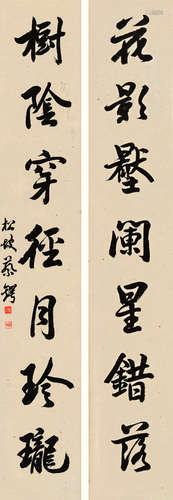 花影壓闌星錯落
樹陰穿徑月玲瓏
松坡蔡鍔